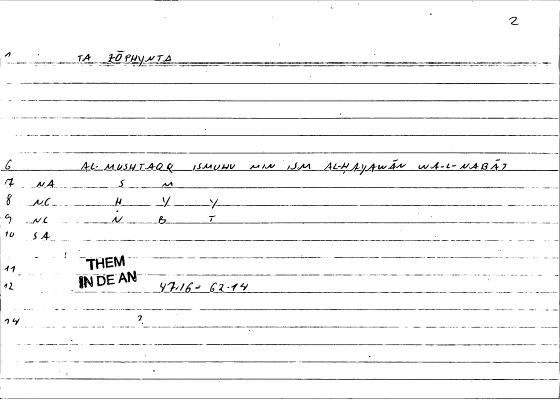 2
1 TA ZŌPHYNTA
6 AL-MUSHTAQQ ISMUHU MIN ISM AL-ḤAYAWĀN WA-L-NABĀT
7 NA S M
8 NC Ḥ Y Y
9 NC N B T
10 SA
11 THEM
12 IN DE AN 47.16 - 62.14
14 ?